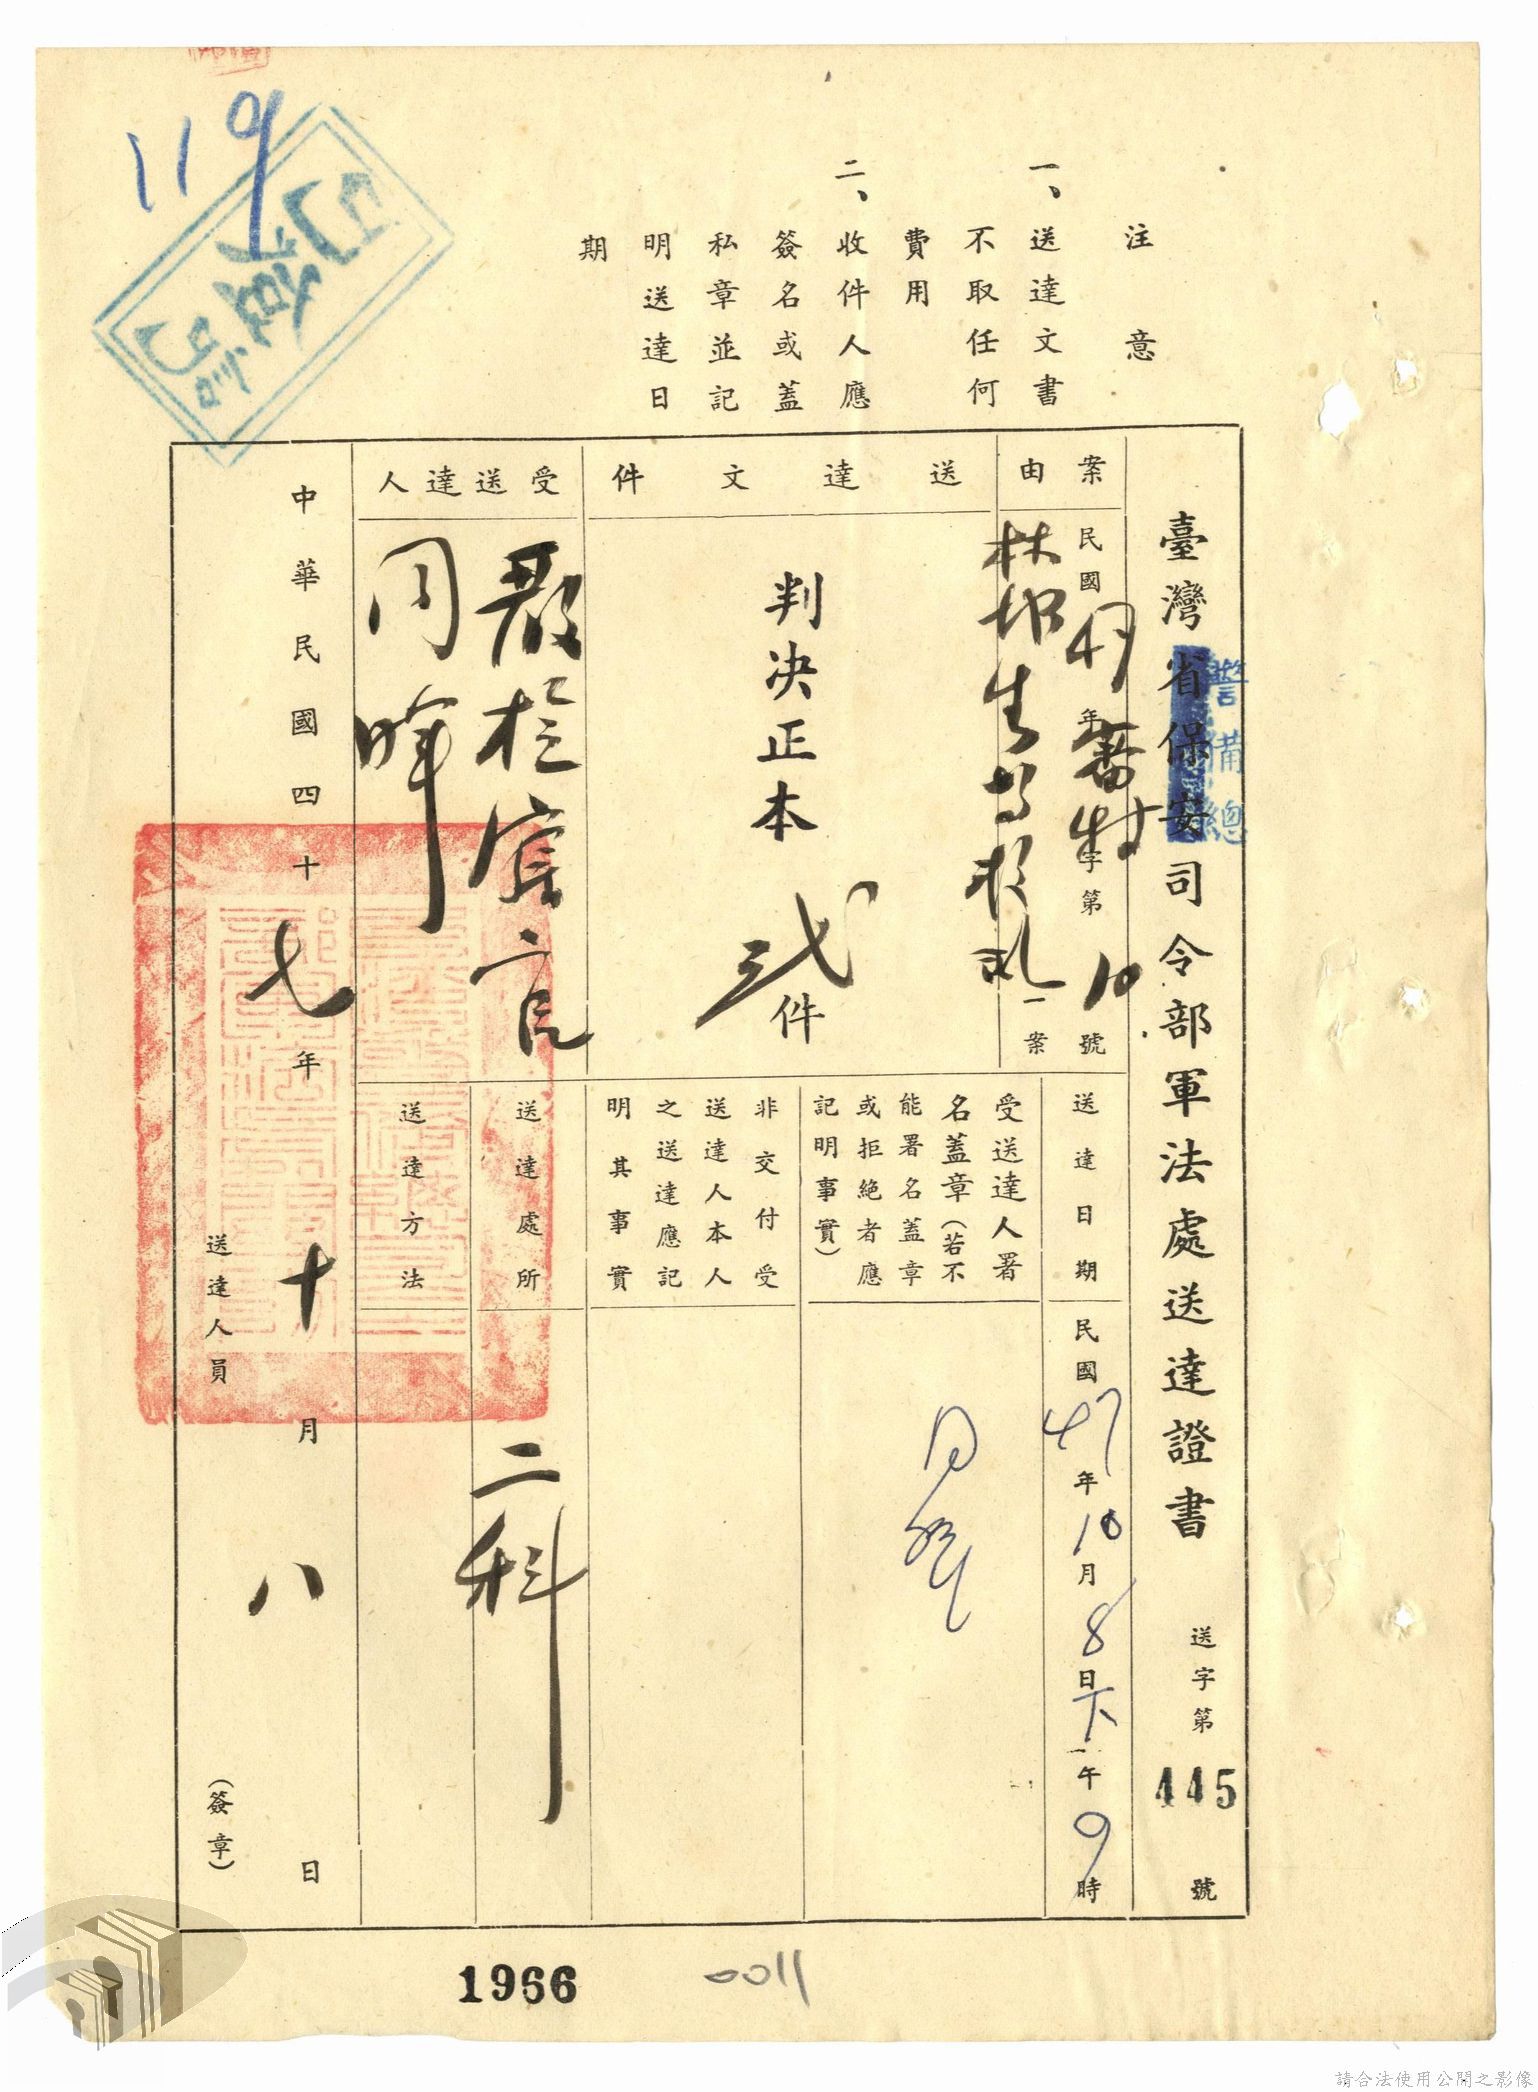 119
注意
一、送達文書
不取任何
費用
二、收件人應
簽名或蓋
私章並記
明送達日
期
臺灣省保安司令部軍法處送達證書
警備總
送字第445號
案由
民國47年審特字第10號
一案
送達文件
判決正本
弍件
受送達人
官
周暉
送達日期
民國47年10月8日下午9時
受送達人署
名蓋章(若不
能署名蓋章
或拒絕者應
記明事實)
非交付受
送達人本人
之送達應記
明其事實
送達處所
二科
送達方法
中華民國四十七年十月八日
送達人員
(簽章)
1966
0011
請合法使用公開之影像